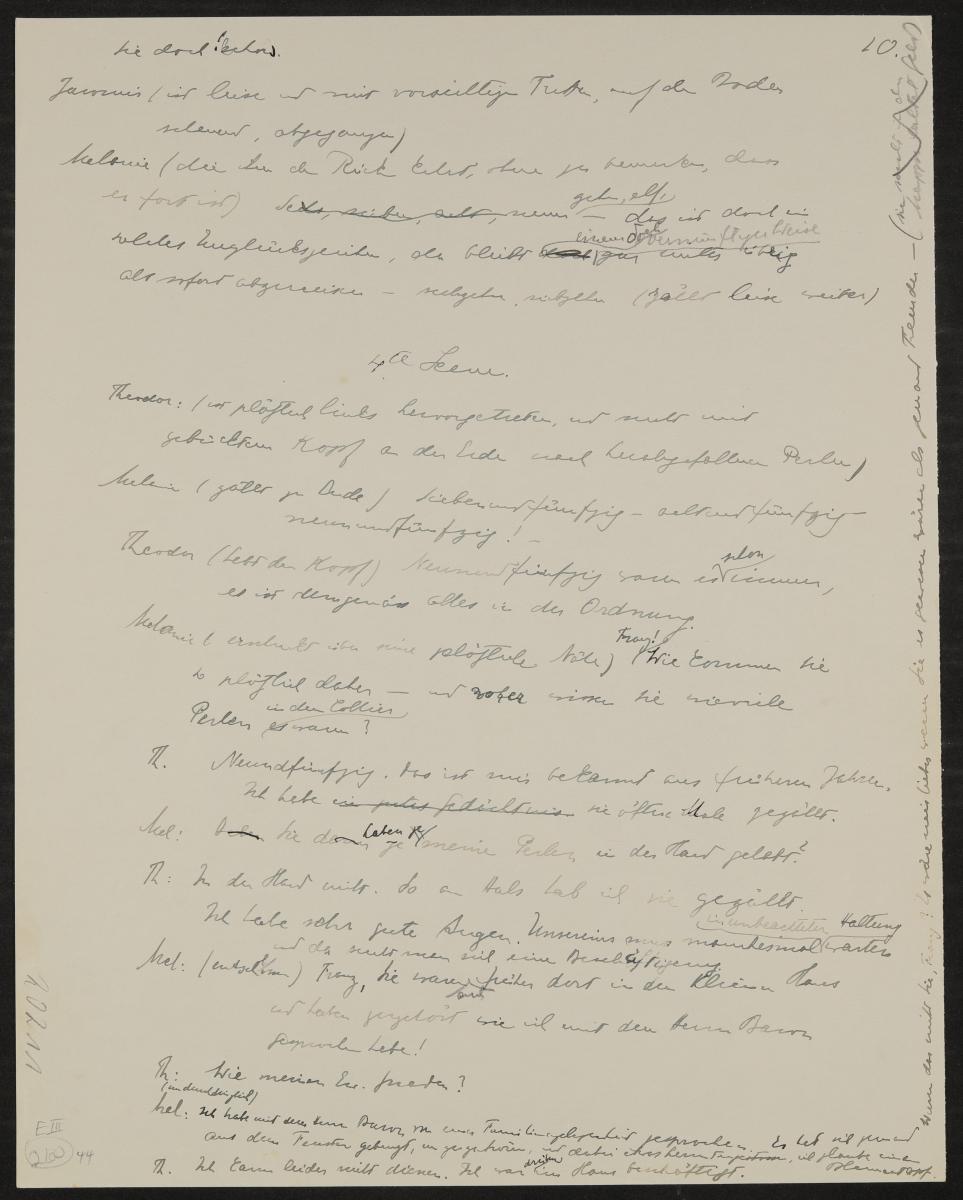 10.
Sie doch schon.
Jaromir (ist leise und mit vorsichtigen Tritten, auf den Boden
sehend, abgegangen)
Melanie (die ihm den Rücken kehrt, ohne zu bemerken, dass
er fort ist) Sechs, sieben, acht, neun — zehn, elf, das ist doch ein
solches Unglückszeichen, da bleibt einem doch vernünftigerweise gar nichts übrig
als sofort abzureisen — sechzehn, siebzehn (zällt leise weiter)
4te Scene.
Theodor: (ist plötzlich links hervorgetreten, und sucht mit
gebücktem Kopf an der Erde nach herabgefallenen Perlen)
Melanie (zällt zu Ende) Siebenundfünfzig — achtundfünfzig —
neunundfünfzig! —
Theodor (hebt den Kopf) Neunundfünfzig waren es schon immer,
es ist demgemäss alles in der Ordnung.
Melanie (erschrickt über seine plötzliche Nähe) Franz! Wie kommen Sie
so plötzlich daher — und woher wissen Sie wieviele
Perlen in dem Collier es waren?
Th. Neunundfünfzig. Das ist mir bekannt aus früheren Jahren.
Ich habe ein gutes Gedächtniss sie öftere Male gezällt.
Mel: Sie haben je meine Perlen in der Hand gehabt?
Th: In der Hand nicht. So am Hals hab ich sie gezällt.
Ich habe sehr gute Augen. Unsereins muss manchesmal in unbeachteter Haltung warten
und da sucht man sich eine Beschäftigung.
Mel: (entschlossen) Franz, Sie waren früher dort in dem kleinen Haus
und haben gehört wie ich mit dem Herrn Baron
gesprochen habe!
Th: Wie meinen Ew. Gnaden?
(undurchdringlich)
Mel: Ich habe mit dem Herrn Baron von einer Familienangelegenheit gesprochen. Es hat sich jemand
aus dem Fenster gebeugt, um zuzuhören, und dabei ich glaube einen
Th. Ich kann leider nicht dienen. Ich war drüben im Haus beschäftigt.
Wenn das nicht Sie, Franz? Es wäre mir lieber wenn Sie es gewesen wären als jemand Fremder —
10211
E III
44